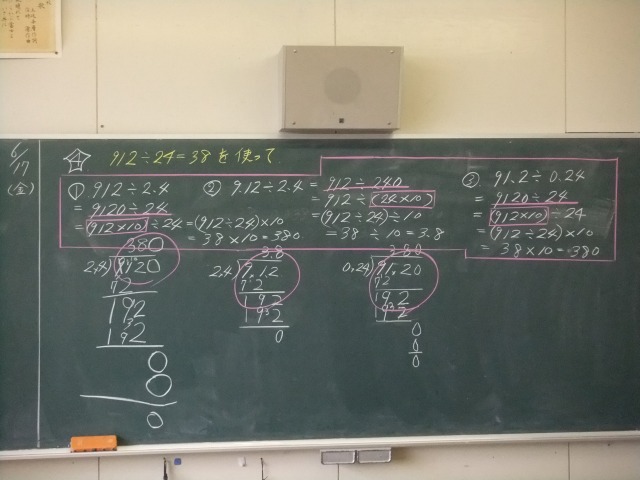 6/17
(金)
4 912÷24=38を使って
① 912÷2.4
= 9120÷24
= (912×10)÷24
= (912÷24)×10
= 38×10=380
② 9.12÷2.4
= 912÷240
= 912÷(24×10)
= (912÷24)÷10
= 38÷10=3.8
③ 91.2÷0.24
= 9120÷24
= (912×10)÷24
= (912÷24)×10
= 38×10=380
380
2.4)9120
72
192
192
0
0
0
3.8
2.4)9.12
72
192
192
0
380
0.24)91.20
72
192
192
0
0
0